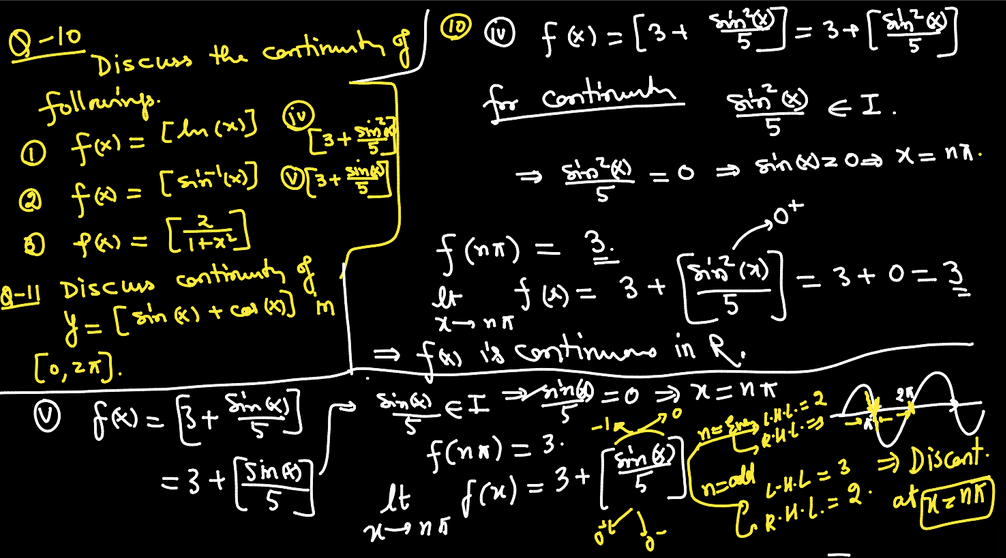 Q-10
Discuss the continuity of
followings.
① f(x) = [ln(x)]
② f(x) = [sin⁻¹(x)]
③ f(x) = [2/(1+x²)]
(iv) [3 + sin²(x)/5]
(v) [3 + sin(x)/5]
Q-11 Discuss continuity of
y = [sin(x) + cos(x)] in
[0, 2π].
⑩ (iv) f(x) = [3 + sin²(x)/5] = 3 + [sin²(x)/5]
for continuity sin²(x)/5 ∈ I.
⇒ sin²(x)/5 = 0 ⇒ sin(x) = 0 ⇒ x = nπ.
f(nπ) = 3.
lt x→nπ f(x) = 3 + [sin²(x)/5] = 3 + 0 = 3
0⁺
⇒ f(x) is continuous in R.
(v) f(x) = [3 + sin(x)/5]
= 3 + [sin(x)/5]
→ sin(x)/5 ∈ I ⇒ sin(x)/5 = 0 ⇒ x = nπ
f(nπ) = 3.
lt x→nπ f(x) = 3 + [sin(x)/5]
-1 0
0⁺ 0⁻
n = Even L.H.L. = 2
R.H.L. = 3
n = odd L.H.L = 3
R.H.L. = 2.
π 2π
⇒ Discont.
at x = nπ